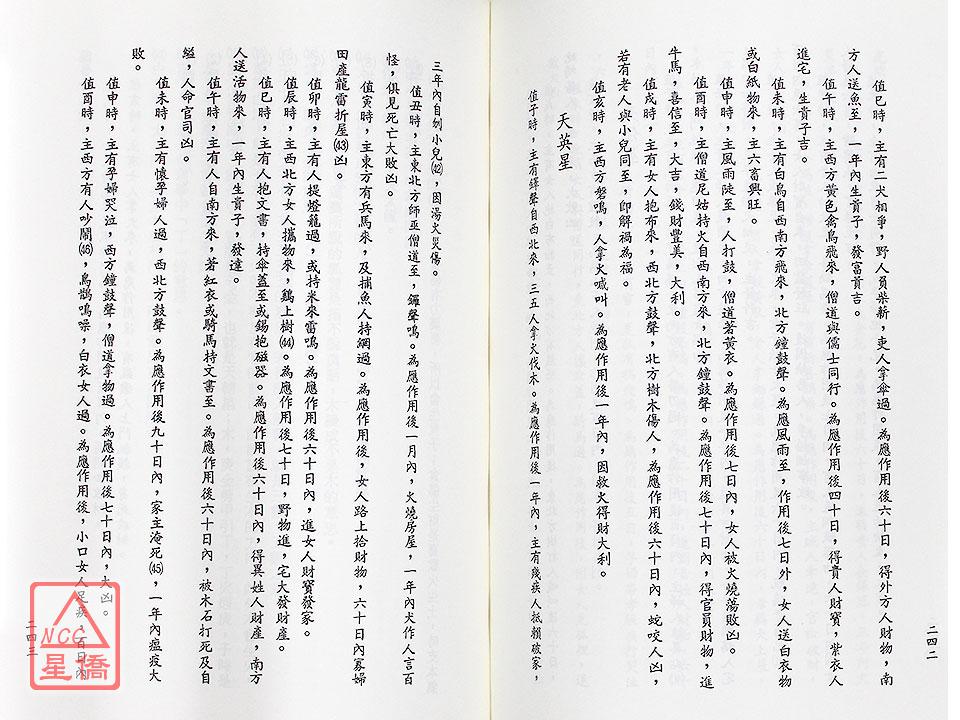 值巳時，主有二犬相爭，野人負柴薪，吏人拿傘過。為應作用後六十日，得外方人財物，南
方人送魚至，一年內生貴子，發富貴吉。
值午時，主西方黃色禽鳥飛來，僧道與儒士同行。為應作用後四十日，得貴人財寶，紫衣人
進宅，生貴子吉。
值未時，主有白鳥自西南方飛來，北方鐘鼓聲。為應風雨至，作用後七日外，女人送白衣物
或白紙物來，主六畜興旺。
值申時，主風雨陡至，人打鼓，僧道著黃衣。為應作用後七日內，女人被火燒蕩敗凶。
值酉時，主僧道尼姑持火自西南方來，北方鐘鼓聲。為應作用後七十日內，得官員財物，進
牛馬，喜信至，大吉，錢財豐美，大利。
值戌時，主有女人抱布來，西北方鼓聲，北方樹木傷人，為應作用後六十日內，蛇咬人凶，
若有老人與小兒同至，即解禍為福。
值亥時，主西方磬鳴，人拿火喊叫。為應作用後一年內，因救火得財大利。
天英星
值子時，主有鑼聲自西北來，三五人拿火伐木。為應作用後一年內，主有殘疾人抵賴破家，
二四二
三年內自刎小兒(42)，因湯火災傷。
值丑時，主東北方師巫僧道至，鑼聲鳴。為應作用後一月內，火燒房屋，一年內犬作人言百
怪，俱見死亡大敗凶。
值寅時，主東方有兵馬來，及捕魚人持網過。為應作用後，女人路上拾財物，六十日內寡婦
田產龍雷折屋(43)凶。
值卯時，主有人提燈籠過，或持米來雷鳴。為應作用後六十日內，進女人財寶發家。
值辰時，主西北方女人攜物來，鷄上樹(44)。為應作用後七十日，野物進，宅大發財產。
值巳時，主有人抱文書，持傘蓋至或錫抱磁器。為應作用後六十日內，得異姓人財產，南方
人送活物來，一年內生貴子，發達。
值午時，主有人自南方來，著紅衣或騎馬持文書至。為應作用後六十日內，被木石打死及自
縊，人命官司凶。
值未時，主有懷孕婦人過，西北方鼓聲。為應作用後九十日內，家主淹死(45)，一年內瘟疫大
敗。
值申時，主有孕婦哭泣，西方鐘鼓聲，僧道拿物過。為應作用後七十日內，大凶。
值酉時，主西方有人吵鬧(46)，烏鵲鳴噪，白衣女人過。為應作用後，小口女人足疾，百日內
二四三
NCC
星僑